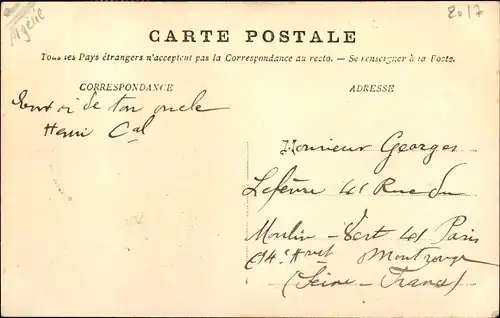 Algérie
2017
CARTE POSTALE
Tous les Pays étrangers n'acceptent pas la Correspondance au recto. — Se renseigner à la Poste.
CORRESPONDANCE
ADRESSE
Envoi de ton oncle
Henri Cal
Monsieur Georges
Lefèvre 41 Rue du
Moulin-Vert 41 Paris
14e Arrt Montrouge
(Seine-France)